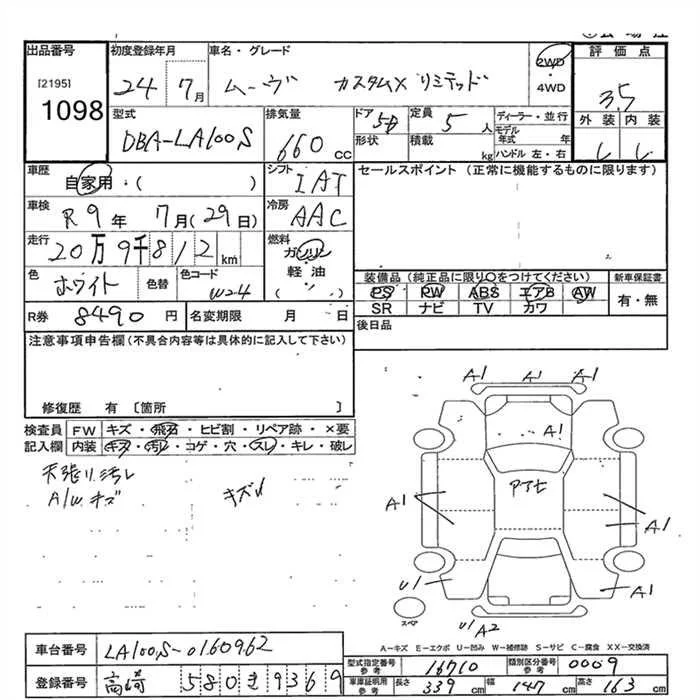 出品番号
[2195]
1098
初度登録年月
24 7月
車名・グレード
ムーヴ カスタムX リミテッド
2WD
・
4WD
評価点
3.5
外装 内装
型式
DBA-LA100S
排気量
660 cc
ドア 5
形状
定員 5人
積載 kg
ディーラー・並行
モデル年式 年
ハンドル 左・右
車歴
自家用・( )
シフト
IAT
車検
R9年 7月(29日)
冷房
AAC
走行
20万9千812km
燃料
ガソリン
軽油
( )
色
ホワイト
色替
色コード
W24
R券 8490円
名変期限 月 日
セールスポイント (正常に機能するものに限ります)
装備品 (純正品に限り○をつけてください)
PS PW ABS エアB AW
SR ナビ TV カワ
新車保証書
有・無
後日品
注意事項申告欄(不具合内容等は具体的に記入して下さい)
修復歴 有 〔箇所 〕
検査員記入欄
FW キズ・飛石・ヒビ割・リペア跡・×要
内装 キズ・汚レ・コゲ・穴・スレ・キレ・破レ
天張リ汚レ
A/W キズ
A1 A1 A1
A1
A1
A1
A1
U1
A1
スペア
U1 A2
A-キズ E-エクボ U-凹み W-補修跡 S-サビ C-腐食 XX-交換済
車台番号 LA100S-0160962
登録番号 高崎 580 き 9369
型式指定番号 参考 16710
類別区分番号 参考 0009
車庫証明用 参考 長さ 339cm 幅 147cm 高さ 163cm